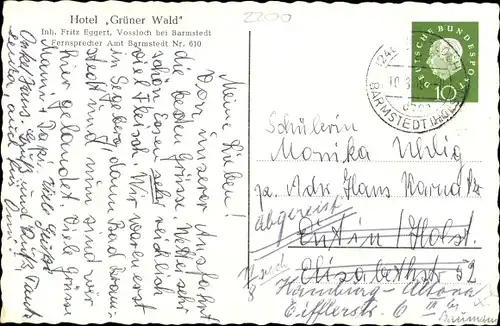 2200
Hotel „Grüner Wald"
Inh. Fritz Eggert, Vossloch bei Barmstedt
Fernsprecher Amt Barmstedt Nr. 610
DEUTSCHE BUNDESPOST
10
BARMSTEDT (HOLST)
Meine Lieben!
Von unserer Ausfahrt
die besten Grüsse. Wetter sehr
schön, Essen sehr reichlich
viel Fleisch. Wir waren erst
in Segeberg, dann Bad Bram-
stedt und nun sind wir
hier gelandet. Viele Grüsse
Mami, Papi, viele Grüsse
Onkel Hans. Gruß und Kuß, Tante
Omi
Schülerin
Monika Uhlig
p. Adr. Hans
Abgereist
Eutin / Holst.
Elisabethstr. 52
Nach
Hamburg-Altona
Eifflerstr. 6 III
bei
Baumann